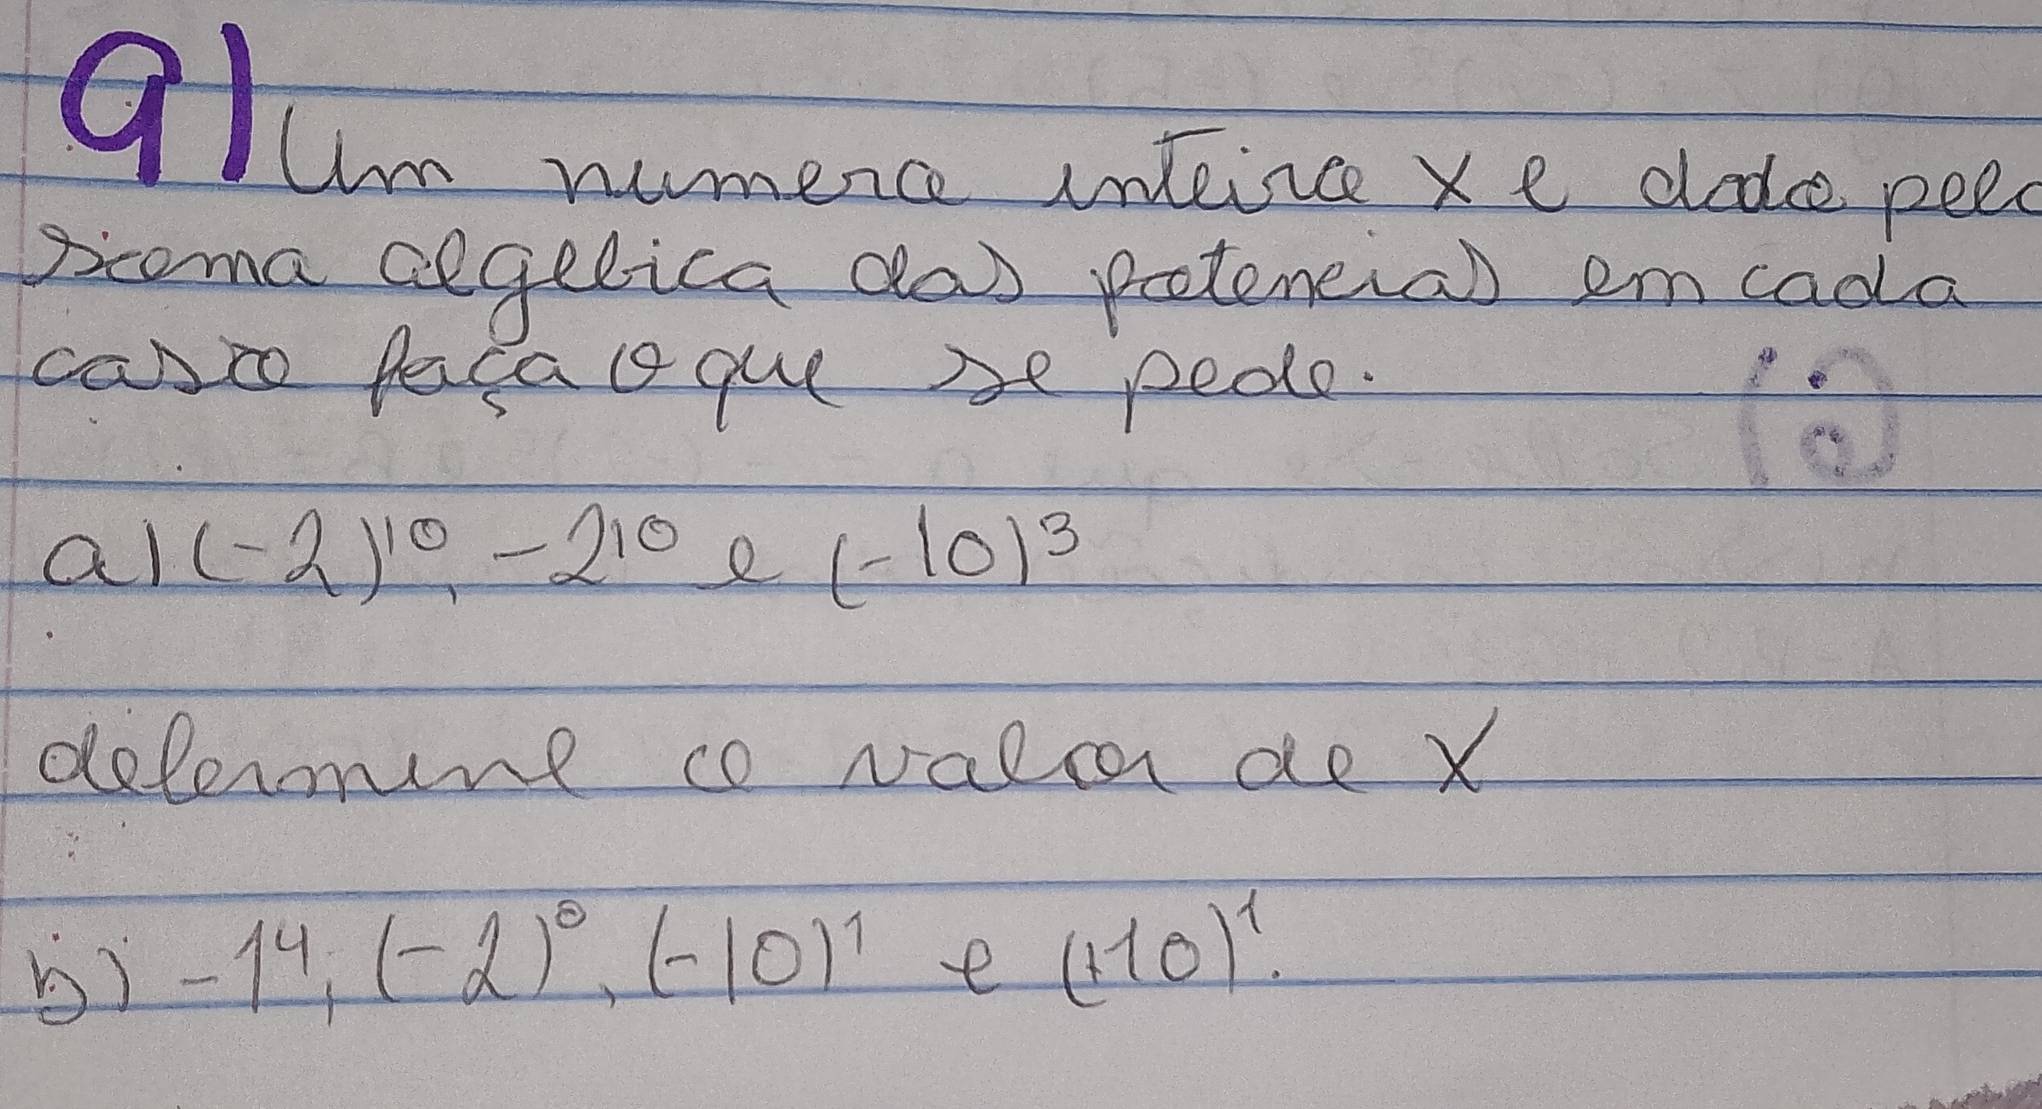 9) Um numero inteiro x e dado pela
soma algebica das potencias em cada
caso faça o que se pede.
a) (-2)¹⁰, -2¹⁰ e (-10)³
determine o valor de x
b) -1⁴; (-2)⁰, (-10)¹ e (+10)¹.